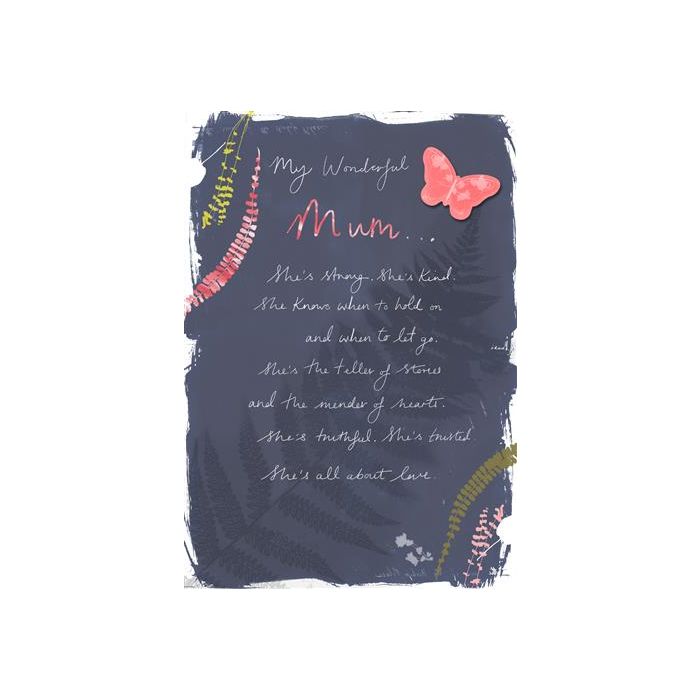 My Wonderful
Mum...
She's strong. She's Kind.
She Knows when to hold on
and when to let go.
She's the teller of stories
and the mender of hearts.
She's truthful. She's trusted.
She's all about love.